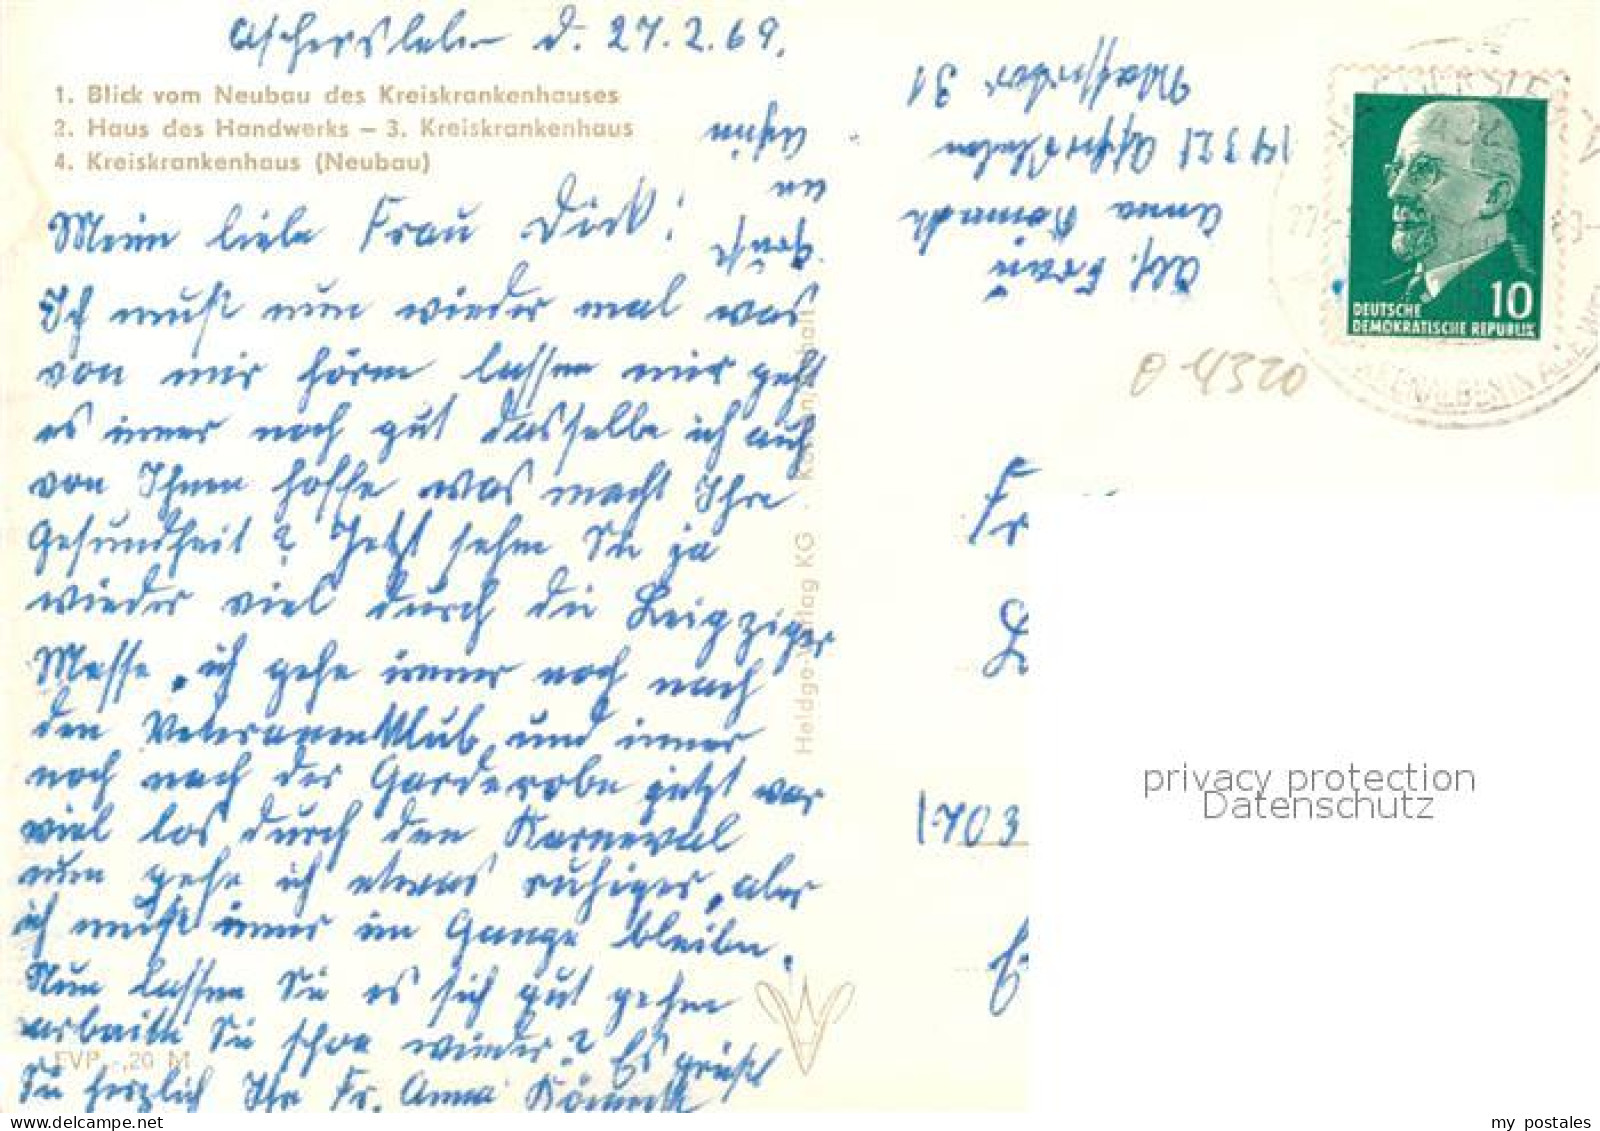 Aschersleben d. 27.2.69.
1. Blick vom Neubau des Kreiskrankenhauses
2. Haus des Handwerks – 3. Kreiskrankenhaus
4. Kreiskrankenhaus (Neubau)
Meine liebe Frau Dick!
Ich muß nun wieder mal was
von mir hören lassen mir geht
es immer noch gut dasselbe ich auch
von Ihnen hoffe was macht Ihre
Gesundheit? Jetzt sehen Sie ja
wieder viel durch die Leipziger
Messe, ich gehe immer noch nach
den Veteranenklub und immer
noch nach der Garderobe jetzt war
viel los durch den Karneval
nun gehe ich etwas ruhiger, aber
ich muß immer im Gange bleiben.
Nun lassen Sie es sich gut gehen
arbeiten Sie schon wieder? Es grüßt
Sie herzlich Ihre Fr. Anna
EVP -,20 M
Heldge-Verlag KG
Abs. Frau
Anna
432 Aschersleben
31
DEUTSCHE
DEMOKRATISCHE REPUBLIK
10
0 4320
Fr
L
703
privacy protection
Datenschutz
my postales